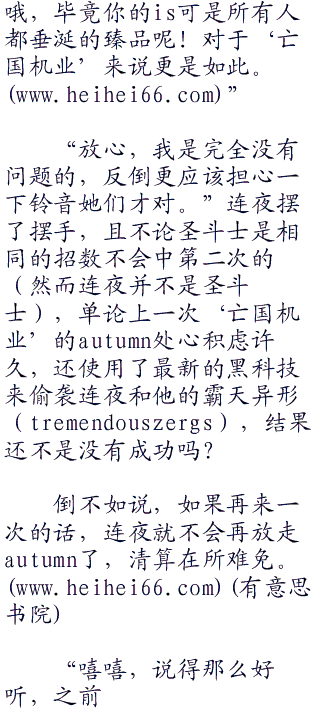 哦，毕竟你的is可是所有人
都垂涎的臻品呢！对于‘亡
国机业’来说更是如此。
(www.heihei66.com)”
“放心，我是完全没有
问题的，反倒更应该担心一
下铃音她们才对。”连夜摆
了摆手，且不论圣斗士是相
同的招数不会中第二次的
（然而连夜并不是圣斗
士），单论上一次‘亡国机
业’的autumn处心积虑许
久，还使用了最新的黑科技
来偷袭连夜和他的霸天异形
（tremendouszergs），结果
还不是没有成功吗？
倒不如说，如果再来一
次的话，连夜就不会再放走
autumn了，清算在所难免。
(www.heihei66.com)(有意思
书院)
“嘻嘻，说得那么好
听，之前